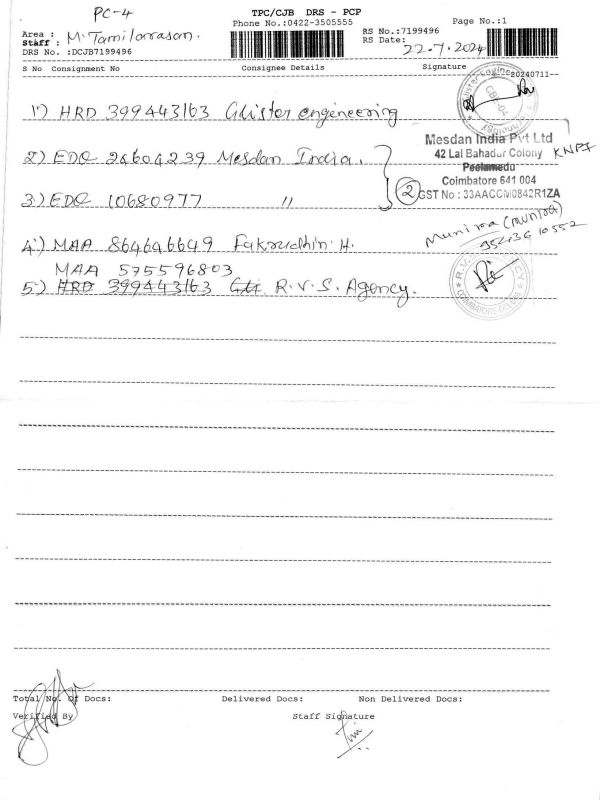 PC-4
TPC/CJB DRS - PCP
Phone No.:0422-3505555
Page No.:1
Area :
Staff : M. Tamilarasan.
DRS No. :DCJB7199496
RS No.:7199496
RS Date: 22-7-2024
S No Consignment No Consignee Details Signature
20240711--
1) HRD 399443163 Glister engineering
2) EDQ 24604239 Mesdan India.
3) EDQ 10680977 "
4) MAA 864646649 Fakrudhin H.
MAA 575596803
5) HRD 399443163 R.V.S. Agency.
Mesdan India Pvt Ltd
42 Lal Bahadur Colony
Peelamedu
Coimbatore 641 004
2 GST No : 33AACCM0842R1ZA
Munira (Munira)
Total No. Of Docs: Delivered Docs: Non Delivered Docs:
Verified By Staff Signature